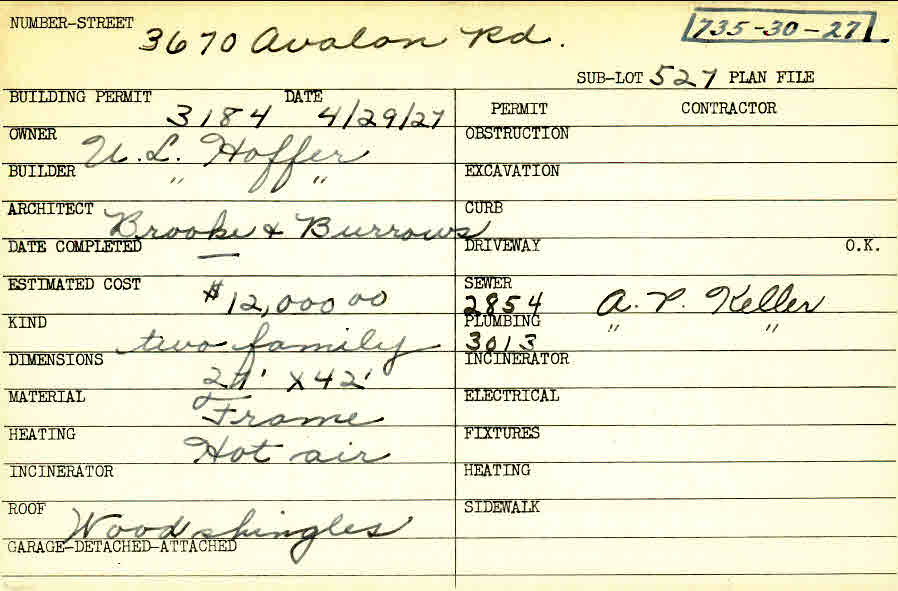 NUMBER-STREET
3670 Avalon Rd.
735-30-27
SUB-LOT 527 PLAN FILE
BUILDING PERMIT DATE
3184 4/29/27
PERMIT CONTRACTOR
OWNER U. L. Hoffer
OBSTRUCTION
BUILDER " "
EXCAVATION
ARCHITECT Brooke & Burrows
CURB
DATE COMPLETED —
DRIVEWAY O.K.
ESTIMATED COST $12,000 00
SEWER
2854 A. P. Keller
KIND two family
PLUMBING " "
3013
DIMENSIONS 27' X 42'
INCINERATOR
MATERIAL Frame
ELECTRICAL
HEATING Hot air
FIXTURES
INCINERATOR
HEATING
ROOF Wood shingles
SIDEWALK
GARAGE-DETACHED-ATTACHED